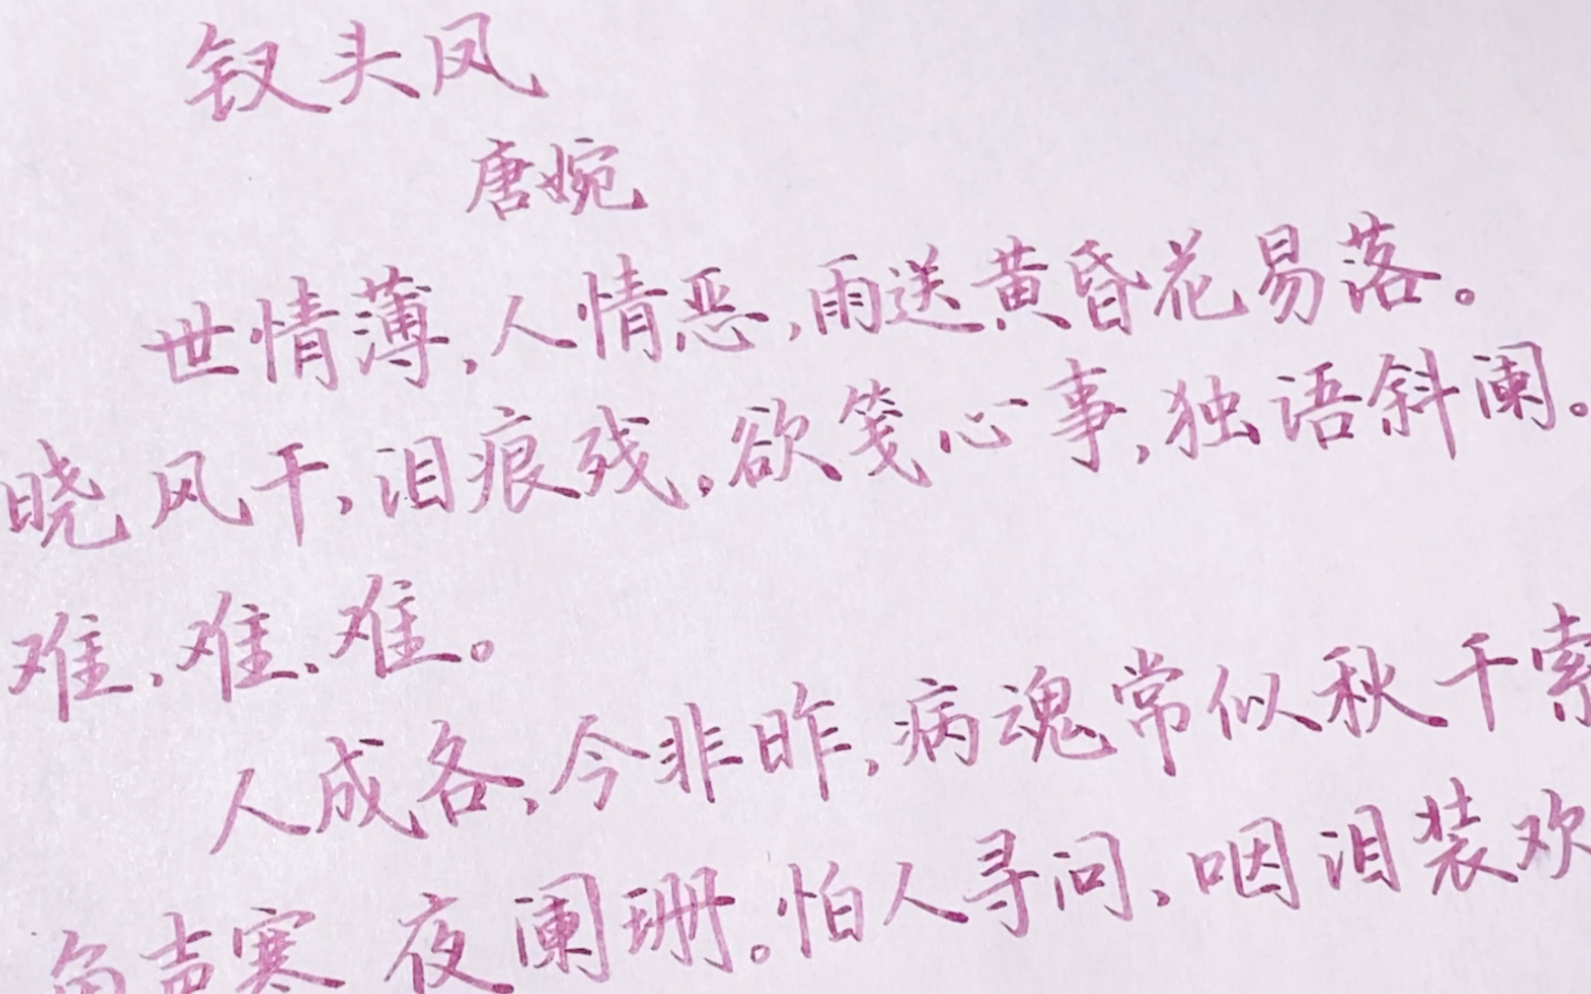 钗头凤
唐婉
世情薄,人情恶,雨送黄昏花易落。
晓风干,泪痕残。欲笺心事,独语斜阑。
难、难、难。
人成各,今非昨,病魂常似秋千索
角声寒 夜阑珊。怕人寻问、咽泪装欢